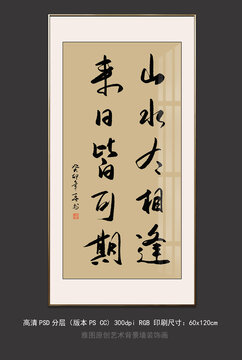 山水尽相逢
来日皆可期
癸卯年
高清PSD分层（版本PS CC）300dpi RGB 印刷尺寸：60x120cm
雅图原创艺术背景墙装饰画